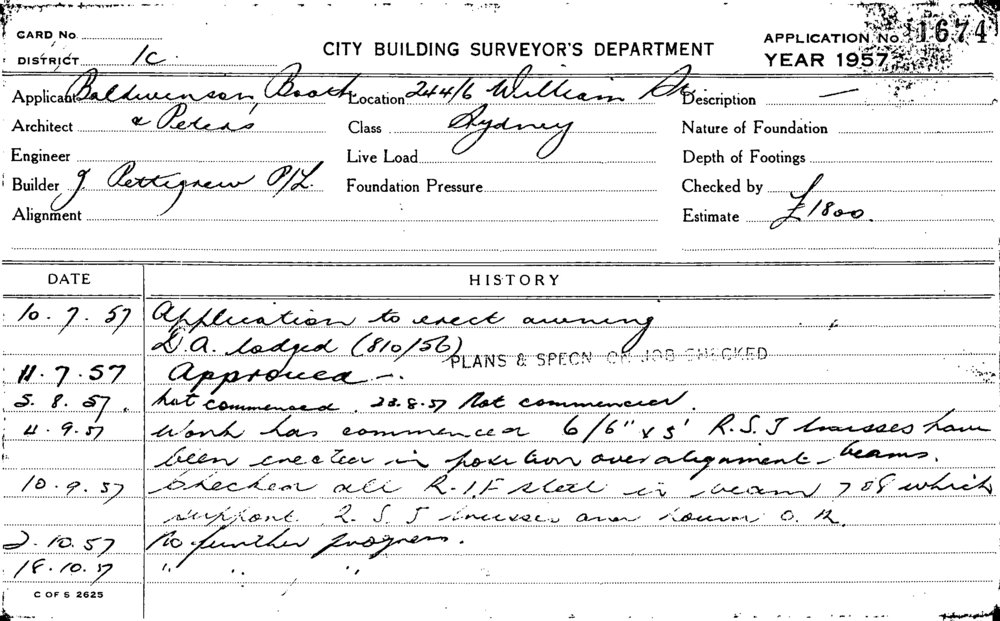 CARD No.
APPLICATION No. 1674
CITY BUILDING SURVEYOR'S DEPARTMENT
DISTRICT 1C
YEAR 1957
Applicant Baldwinson, Booth Location 244/6 William St, Description —
Architect & Peters Class Sydney Nature of Foundation
Engineer Live Load Depth of Footings
Builder J Pettigrew P/L. Foundation Pressure Checked by
Alignment Estimate £1800.
DATE HISTORY
10.7.57 Application to erect awning
D.A. lodged (810/56)
PLANS & SPECN ON JOB CHECKED
11.7.57 Approved —.
5.8.57. Not commenced. 23.8.57 Not commenced.
4.9.57 Work has commenced 6/6" x 5' R.S.J trusses have
been erected in position over alignment beams.
10.9.57 Checked all R.I.F steel in beam 7 & 8 which
support R.S.J trusses and found O.K.
2.10.57 No further progress.
18.10.57 " " "
C OF S 2625